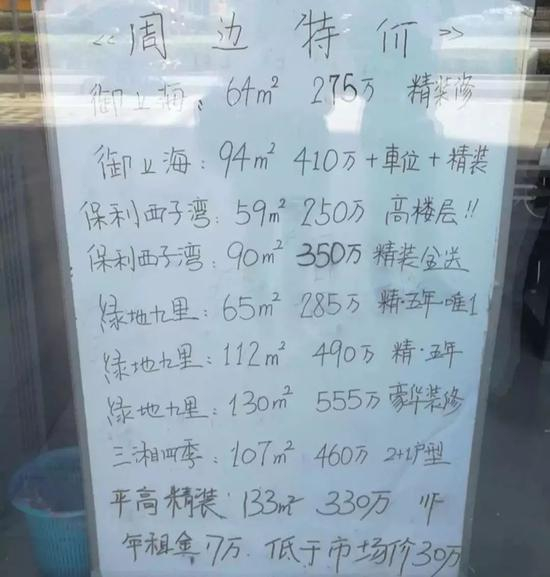 《周边特价》
御上海：64m² 275万 精装修
御上海：94m² 410万+車位+精装
保利西子湾：59m² 250万 高楼层!!
保利西子湾：90m² 350万 精装全送
绿地九里：65m² 285万 精·五年唯1
绿地九里：112m² 490万 精·五年
绿地九里：130m² 555万 豪华装修
三湘四季：107m² 460万 2+1户型
平高精装：133m² 330万
年租金17万. 低于市场价30万